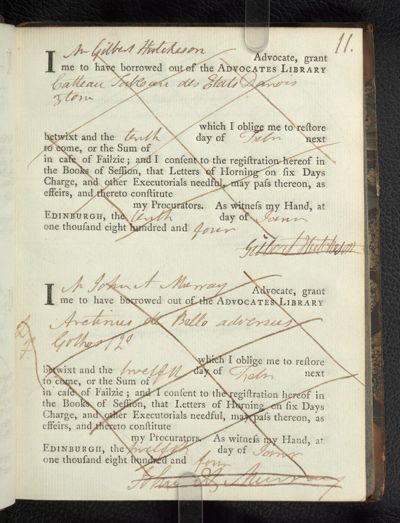 11.
I Mr Gilbert Hutcheson Advocate, grant
me to have borrowed out of the ADVOCATES LIBRARY
Catteau Tableau des Etats Danois
3 tom
which I oblige me to reſtore
betwixt and the tenth day of Febr next
to come, or the Sum of
in caſe of Failzie; and I conſent to the regiſtration hereof in
the Books of Seſſion, that Letters of Horning on ſix Days
Charge, and other Executorials needful, may paſs thereon, as
effeirs, and thereto conſtitute
my Procurators. As witneſs my Hand, at
EDINBURGH, the tenth day of Janry
one thouſand eight hundred and four
Gilbert Hutcheson
I Mr John A Murray Advocate, grant
me to have borrowed out of the ADVOCATES LIBRARY
Aretinus de Bello adversus
Gothos 12o
which I oblige me to reſtore
betwixt and the twelfth day of Febr next
to come, or the Sum of
in caſe of Failzie; and I conſent to the regiſtration hereof in
the Books of Seſſion, that Letters of Horning on ſix Days
Charge, and other Executorials needful, may paſs thereon, as
effeirs, and thereto conſtitute
my Procurators. As witneſs my Hand, at
EDINBURGH, the twelfth day of Janry
one thouſand eight hundred and four
Murray